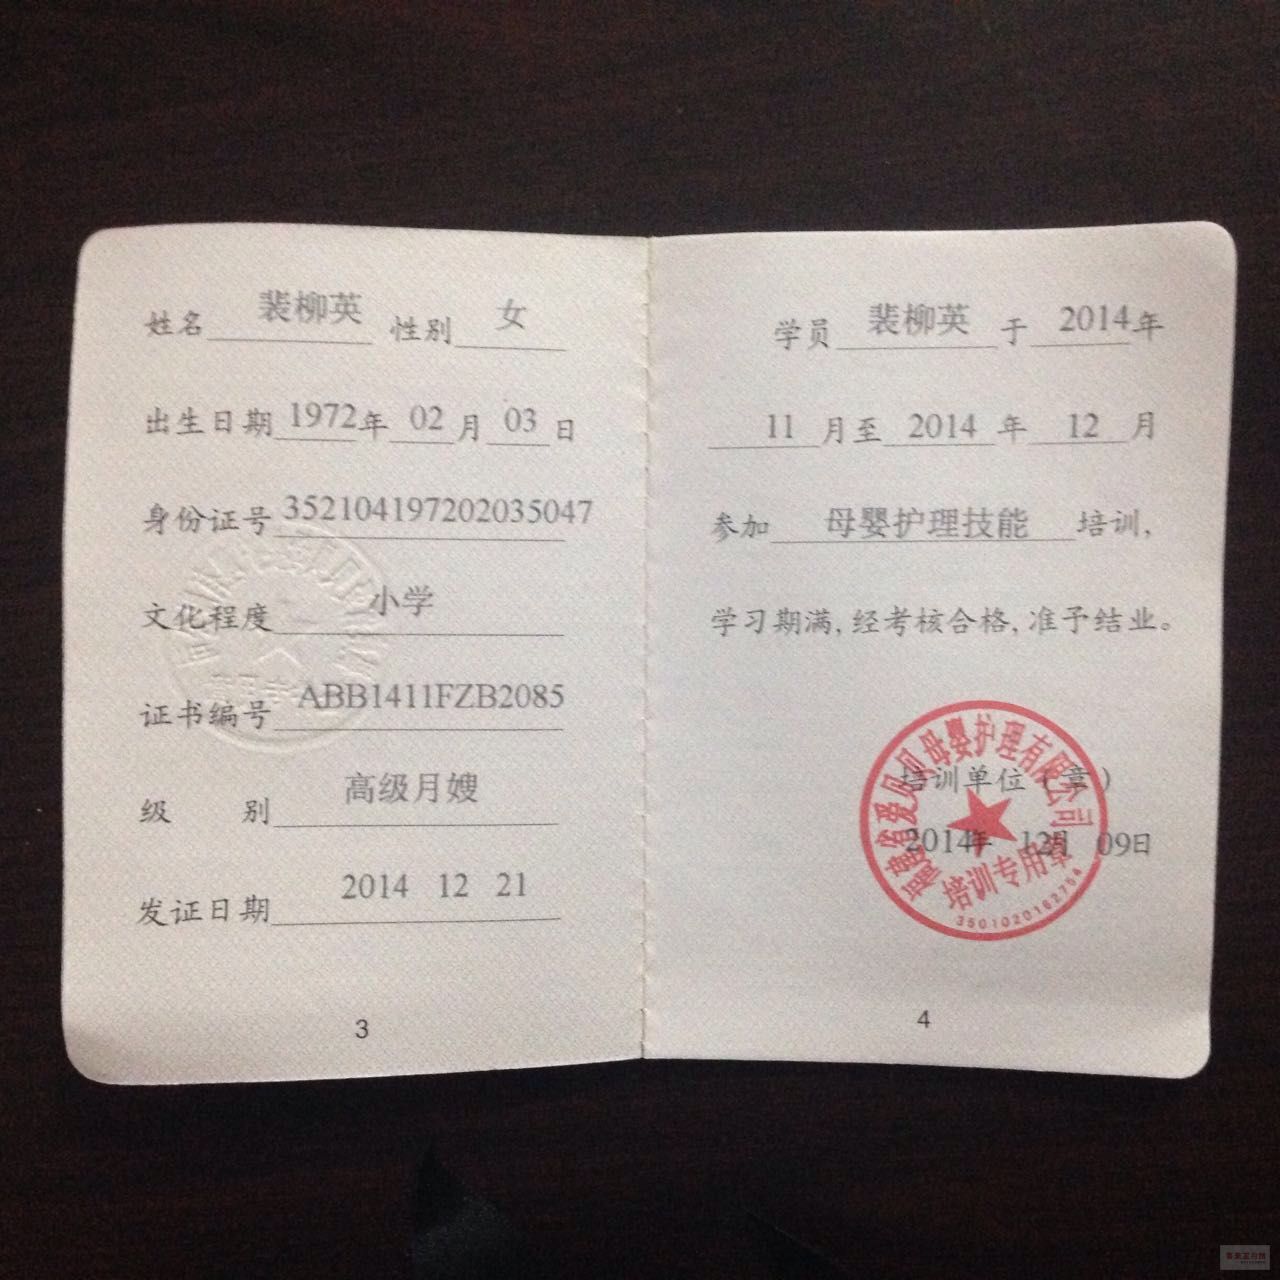 姓名 裴柳英 性别 女
出生日期 1972年 02 月 03 日
身份证号 352104197202035047
文化程度 小学
证书编号 ABB1411FZB2085
级 别 高级月嫂
发证日期 2014 12 21
3
学员 裴柳英 于 2014年
11 月至 2014 年 12 月
参加 母婴护理技能 培训,
学习期满,经考核合格,准予结业。
培训单位(章)
2014年 12月 09日
福建省爱贝贝母婴护理有限公司
培训专用章
3501020162754
4